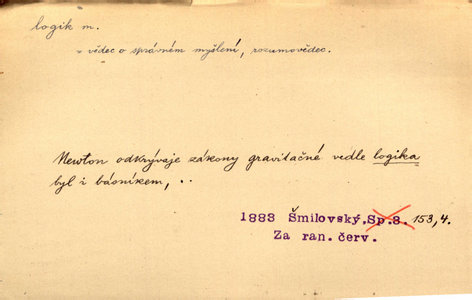 logik m.
v vědec o správném myšlení, rozumovědec.
Newton odkrývaje zákony gravitačné vedle logika
byl i básníkem, ..
1883 Šmilovský.Sp.8. 153,4.
Za ran. červ.